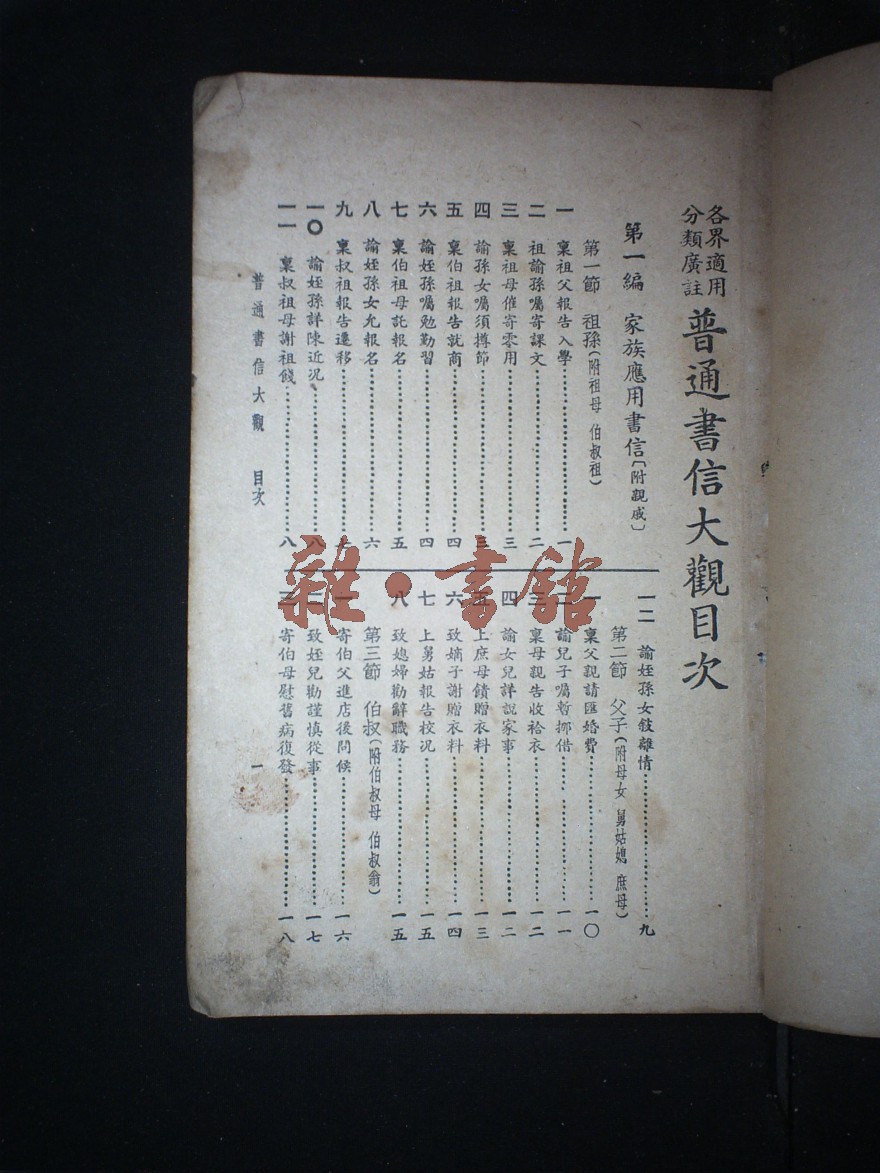 各界適用
分類廣註
普通書信大觀目次
第一編 家族應用書信〔附親戚〕
第一節 祖孫(附祖母 伯叔祖)
一 稟祖父報告入學……一
二 祖諭孫囑寄課文……二
三 稟祖母催寄零用……三
四 諭孫女囑須撙節……三
五 稟伯祖報告就商……四
六 諭姪孫囑勉勤習……四
七 稟伯祖母託報名……五
八 諭姪孫女允報名……六
九 稟叔祖報告遷移……七
一〇 諭姪孫詳陳近況……八
一一 稟叔祖母謝祖餞……八
一二 諭姪孫女敍離情……九
第二節 父子(附母女 舅姑媳 庶母)
一 稟父親請匯婚費……一〇
二 諭兒子囑暫挪借……一一
三 稟母親告收袷衣……一二
四 諭女兒詳說家事……一二
五 上庶母饋贈衣料……一三
六 致嫡子謝贈衣料……一四
七 上舅姑報告校況……一五
八 致媳婦勸辭職務……一五
第三節 伯叔(附伯叔母 伯叔翁)
一 寄伯父進店後問候……一六
二 致姪兒勸謹慎從事……一七
三 寄伯母慰舊病復發……一八
普通書信大觀 目次
一
雜·書館